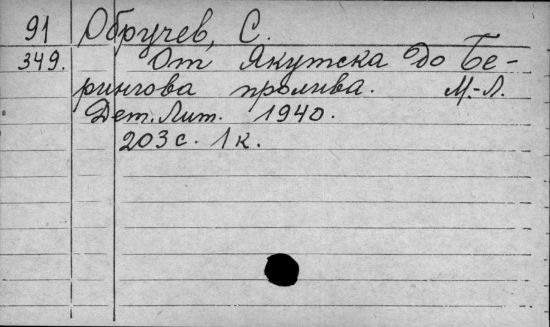 91 Обручев, С.
349. От Якутска до Бе-
рингова пролива. М.-Л.
Дет. Лит. 1940.
203 с. 1 к.